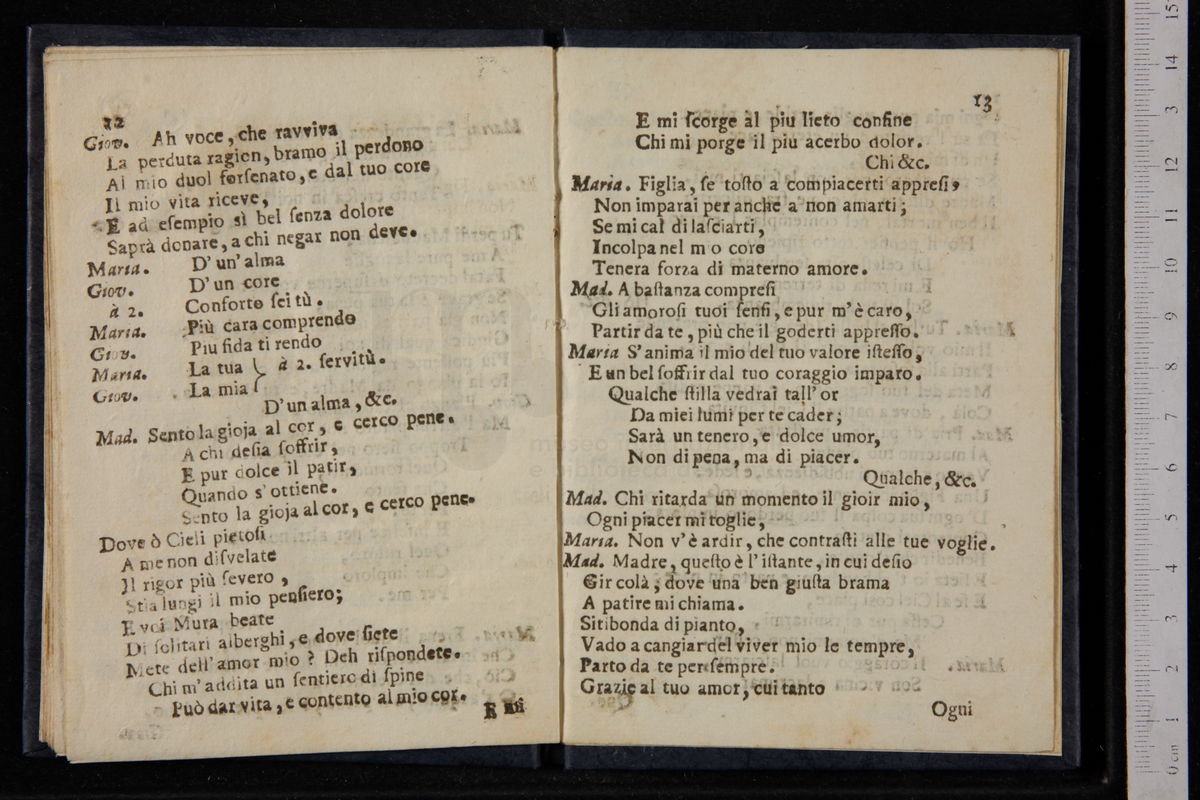 12
Giov. Ah voce, che ravviva
La perduta ragion, bramo il perdono
Al mio duol forſenato, e dal tuo core
Il mio vita riceve,
E ad eſempio sì bel ſenza dolore
Saprà donare, a chi negar non deve.
Maria. D'un'alma
Giov. D'un core
à 2. Conforto ſei tù.
Maria. Più cara comprendo
Giov. Piu fida ti rendo
Maria. La tua } à 2. ſervitù.
Giov. La mia
D'un alma, &c.
Mad. Sento la gioja al cor, e cerco pene.
A chi deſia ſoffrir,
E pur dolce il patir,
Quando s'ottiene.
Sento la gioja al cor, e cerco pene.
Dove ò Cieli pietoſi
A me non diſvelate
Il rigor più ſevero,
Stia lungi il mio penſiero;
E voi Mura beate
Di ſolitari alberghi, e dove ſiete
Mete dell'amor mio? Deh riſpondete.
Chi m'addita un ſentiero di ſpine
Può dar vita, e contento al mio cor.
E mi
13
E mi ſcorge al piu lieto confine
Chi mi porge il piu acerbo dolor.
Chi &c.
Maria. Figlia, ſe toſto a compiacerti appreſi,
Non imparai per anche a non amarti;
Se mi cal di laſciarti,
Incolpa nel m o core
Tenera forza di materno amore.
Mad. A baſtanza compreſi
Gli amoroſi tuoi ſenſi, e pur m'è caro,
Partir da te, più che il goderti appreſſo.
Maria S'anima il mio del tuo valore iſteſſo,
E un bel ſoffrir dal tuo coraggio imparo.
Qualche ſtilla vedrai tall'or
Da miei lumi per te cader;
Sarà un tenero, e dolce umor,
Non di pena, ma di piacer.
Qualche, &c.
Mad. Chi ritarda un momento il gioir mio,
Ogni piacer mi toglie,
Maria. Non v'è ardir, che contraſti alle tue voglie.
Mad. Madre, queſto è l'iſtante, in cui deſio
Gir colà; dove una ben giuſta brama
A patire mi chiama.
Sitibonda di pianto,
Vado a cangiar del viver mio le tempre,
Parto da te per ſempre.
Grazie al tuo amor, cui tanto
Ogni